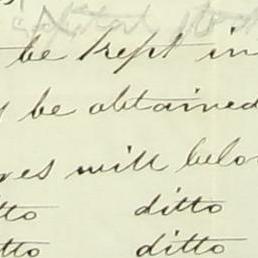 be kept in
be obtained
es will belo
tto ditto
tto ditto